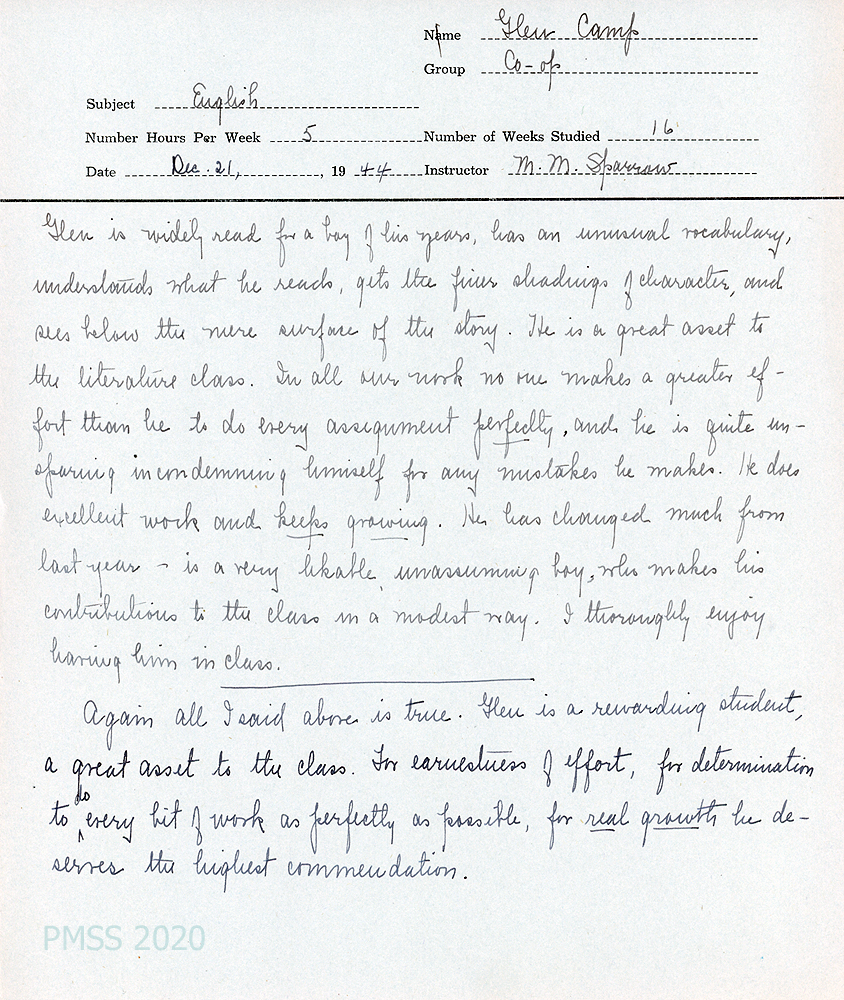 Name Glen Camp
Group Co-op
Subject English
Number Hours Per Week 5 Number of Weeks Studied 16
Date Dec. 21, , 19 44 Instructor M. M. Sparrow
Glen is widely read for a boy of his years, has an unusual vocabulary,
understands what he reads, gets the finer shadings of character, and
sees below the mere surface of the story. He is a great asset to
the literature class. In all our work no one makes a greater ef-
fort than he to do every assignment perfectly, and he is quite un-
sparing in condemning himself for any mistakes he makes. He does
excellent work and keeps growing. He has changed much from
last year - is a very likable, unassuming boy, who makes his
contributions to the class in a modest way. I thoroughly enjoy
having him in class.
Again all I said above is true. Glen is a rewarding student,
a great asset to the class. For earnestness of effort, for determination
to do every bit of work as perfectly as possible, for real growth he de-
serves the highest commendation.
PMSS 2020